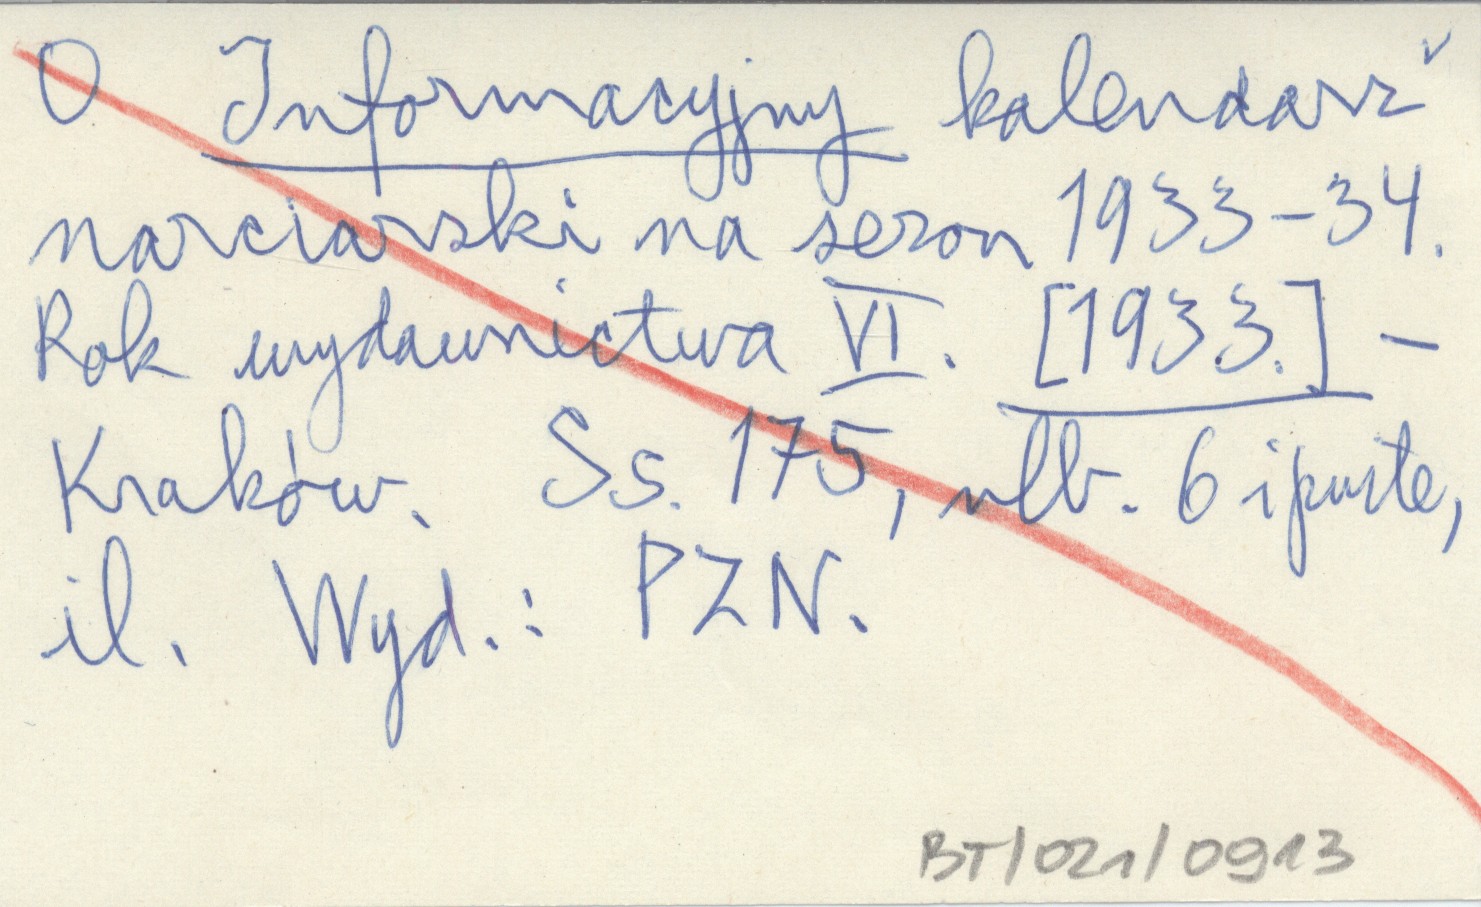 O Informacyjny kalendarz
narciarski na sezon 1933-34.
Rok wydawnictwa VI. [1933.] -
Kraków. Ss. 175, nlb. 6 i puste,
il. Wyd.: PZN.
BT/021/0913